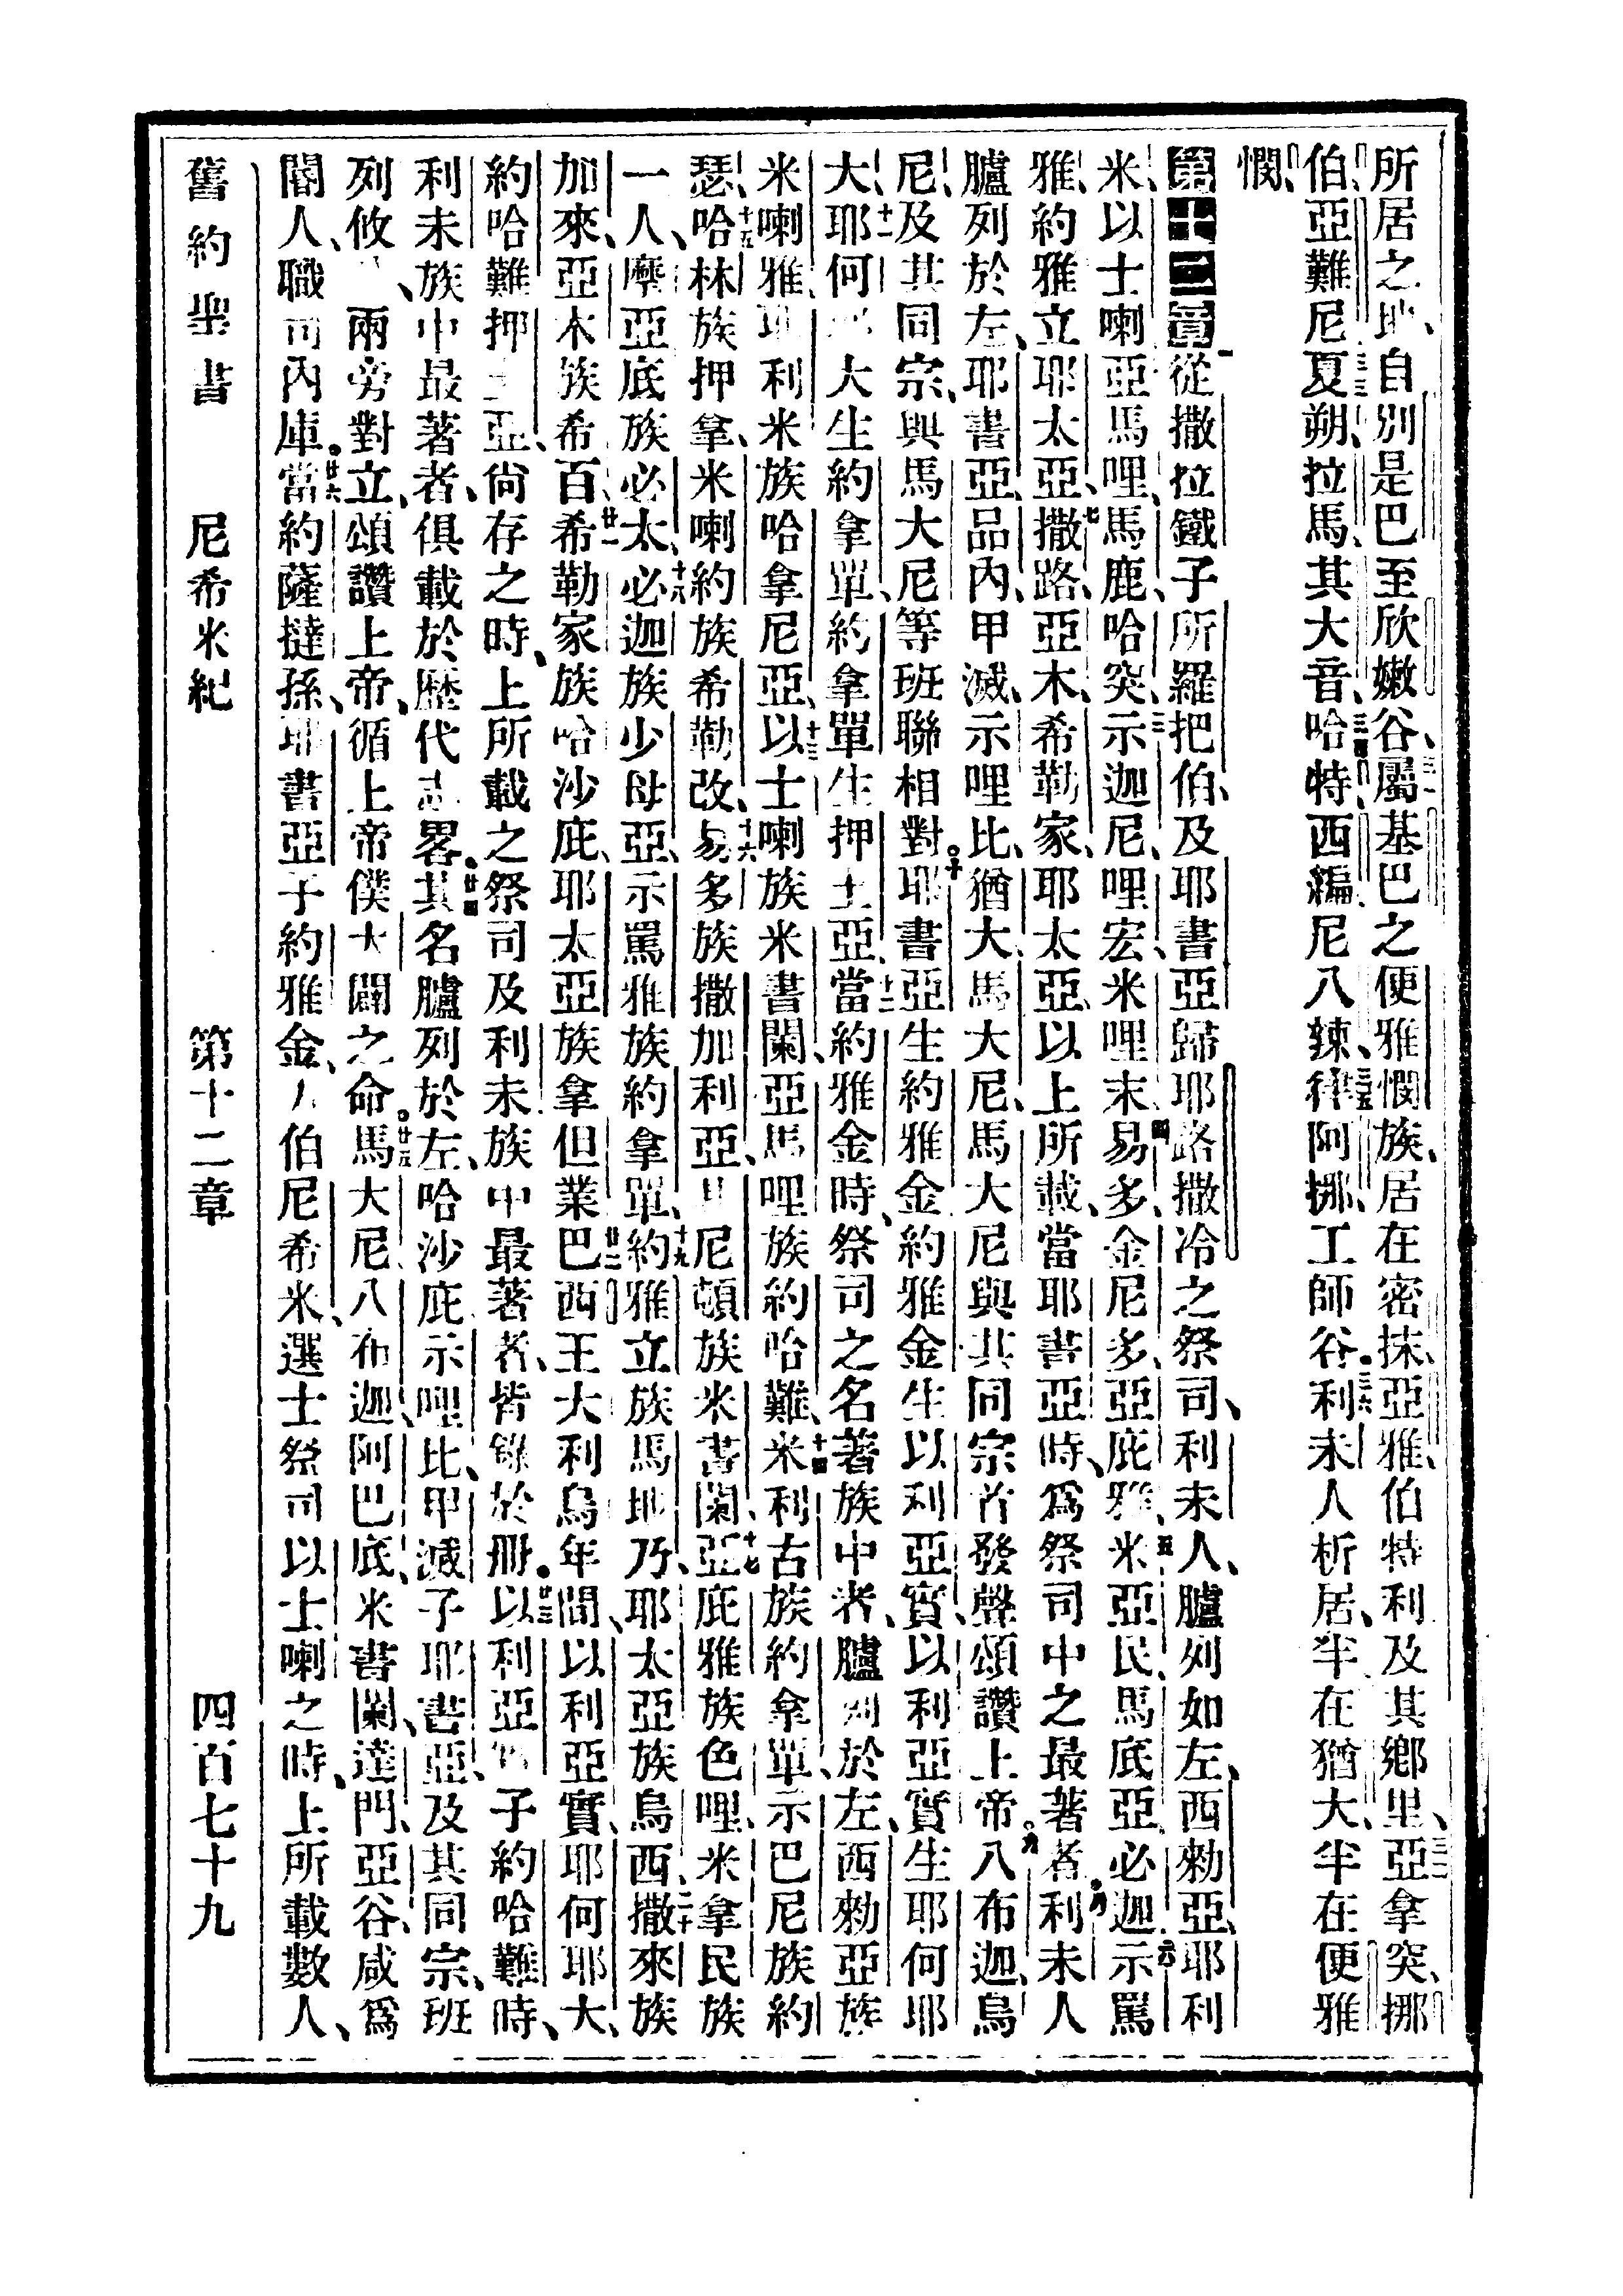 所居之地、自別是巴至欣嫩谷、屬基巴之便雅憫族、居在密抹、亞雅、伯特利及其鄉里、亞拿突、挪
伯、亞難尼夏朔、拉馬、其大音、哈特、西編、尼八辣、律阿挪、工師谷。利未人析居、半在猶大、半在便雅
憫、
第十二章 從撒拉鐵子所羅把伯、及耶書亞歸耶路撒冷之祭司、利未人、臚列如左、西勑亞、耶利
米、以士喇、亞馬哩、馬鹿、哈突、示迦尼、哩宏、米哩末、易多、金尼多、亞庇雅、米亞民、馬底亞、必迦、示罵
雅、約雅立、耶太亞、撒路、亞木、希勒家、耶太亞、以上所載、當耶書亞時、爲祭司中之最著者。利未人
臚列於左、耶書亞、品內、甲滅、示哩比、猶大、馬大尼、馬大尼與其同宗首發聲頌讚上帝。八布迦、烏
尼、及其同宗、與馬大尼等班聯相對。耶書亞生約雅金、約雅金生以利亞實、以利亞實生耶何耶
大、耶何耶大生約拿單、約拿單生押土亞、當約雅金時、祭司之名著族中者、臚列於左、西勑亞族
米喇雅、耶利米族哈拿尼亞、以士喇族米書闌、亞馬哩族約哈難、米利古族約拿單、示巴尼族約
瑟、哈林族押拿、米喇約族希勒改、易多族撒加利亞、其尼頓族米書闌、亞庇雅族色哩、米拿民族
一人、摩亞底族必太、必迦族少母亞、示罵雅族約拿單、約雅立族馬地乃、耶太亞族烏西、撒來族
加來、亞木族希百、希勒家族哈沙庇、耶太亞族拿但業、巴西王大利烏年間、以利亞實、耶何耶大、
約哈難、押土亞、尙存之時、上所載之祭司及利未族中最著者、皆錄於冊。以利亞實子約哈難時、
利未族中最著者、俱載於歷代志畧。其名臚列於左、哈沙庇、示哩比、甲滅子耶書亞、及其同宗、班
列攸分、兩旁對立、頌讚上帝、循上帝僕大闢之命。馬大尼、八布迦、阿巴底、米書闌、達門、亞谷、咸爲
閽人、職司內庫。當約薩撻孫、耶書亞子約雅金、方伯尼希米、選士祭司以士喇之時、上所載數人、
舊約聖書 尼希米紀 第十二章 四百七十九